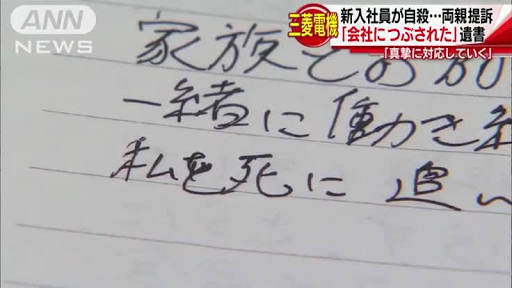 ANN
NEWS
三菱電機
新入社員が自殺…両親提訴
「会社につぶされた」遺書
「真摯に対応していく」
家族との
一緒に働き
私を死に追い